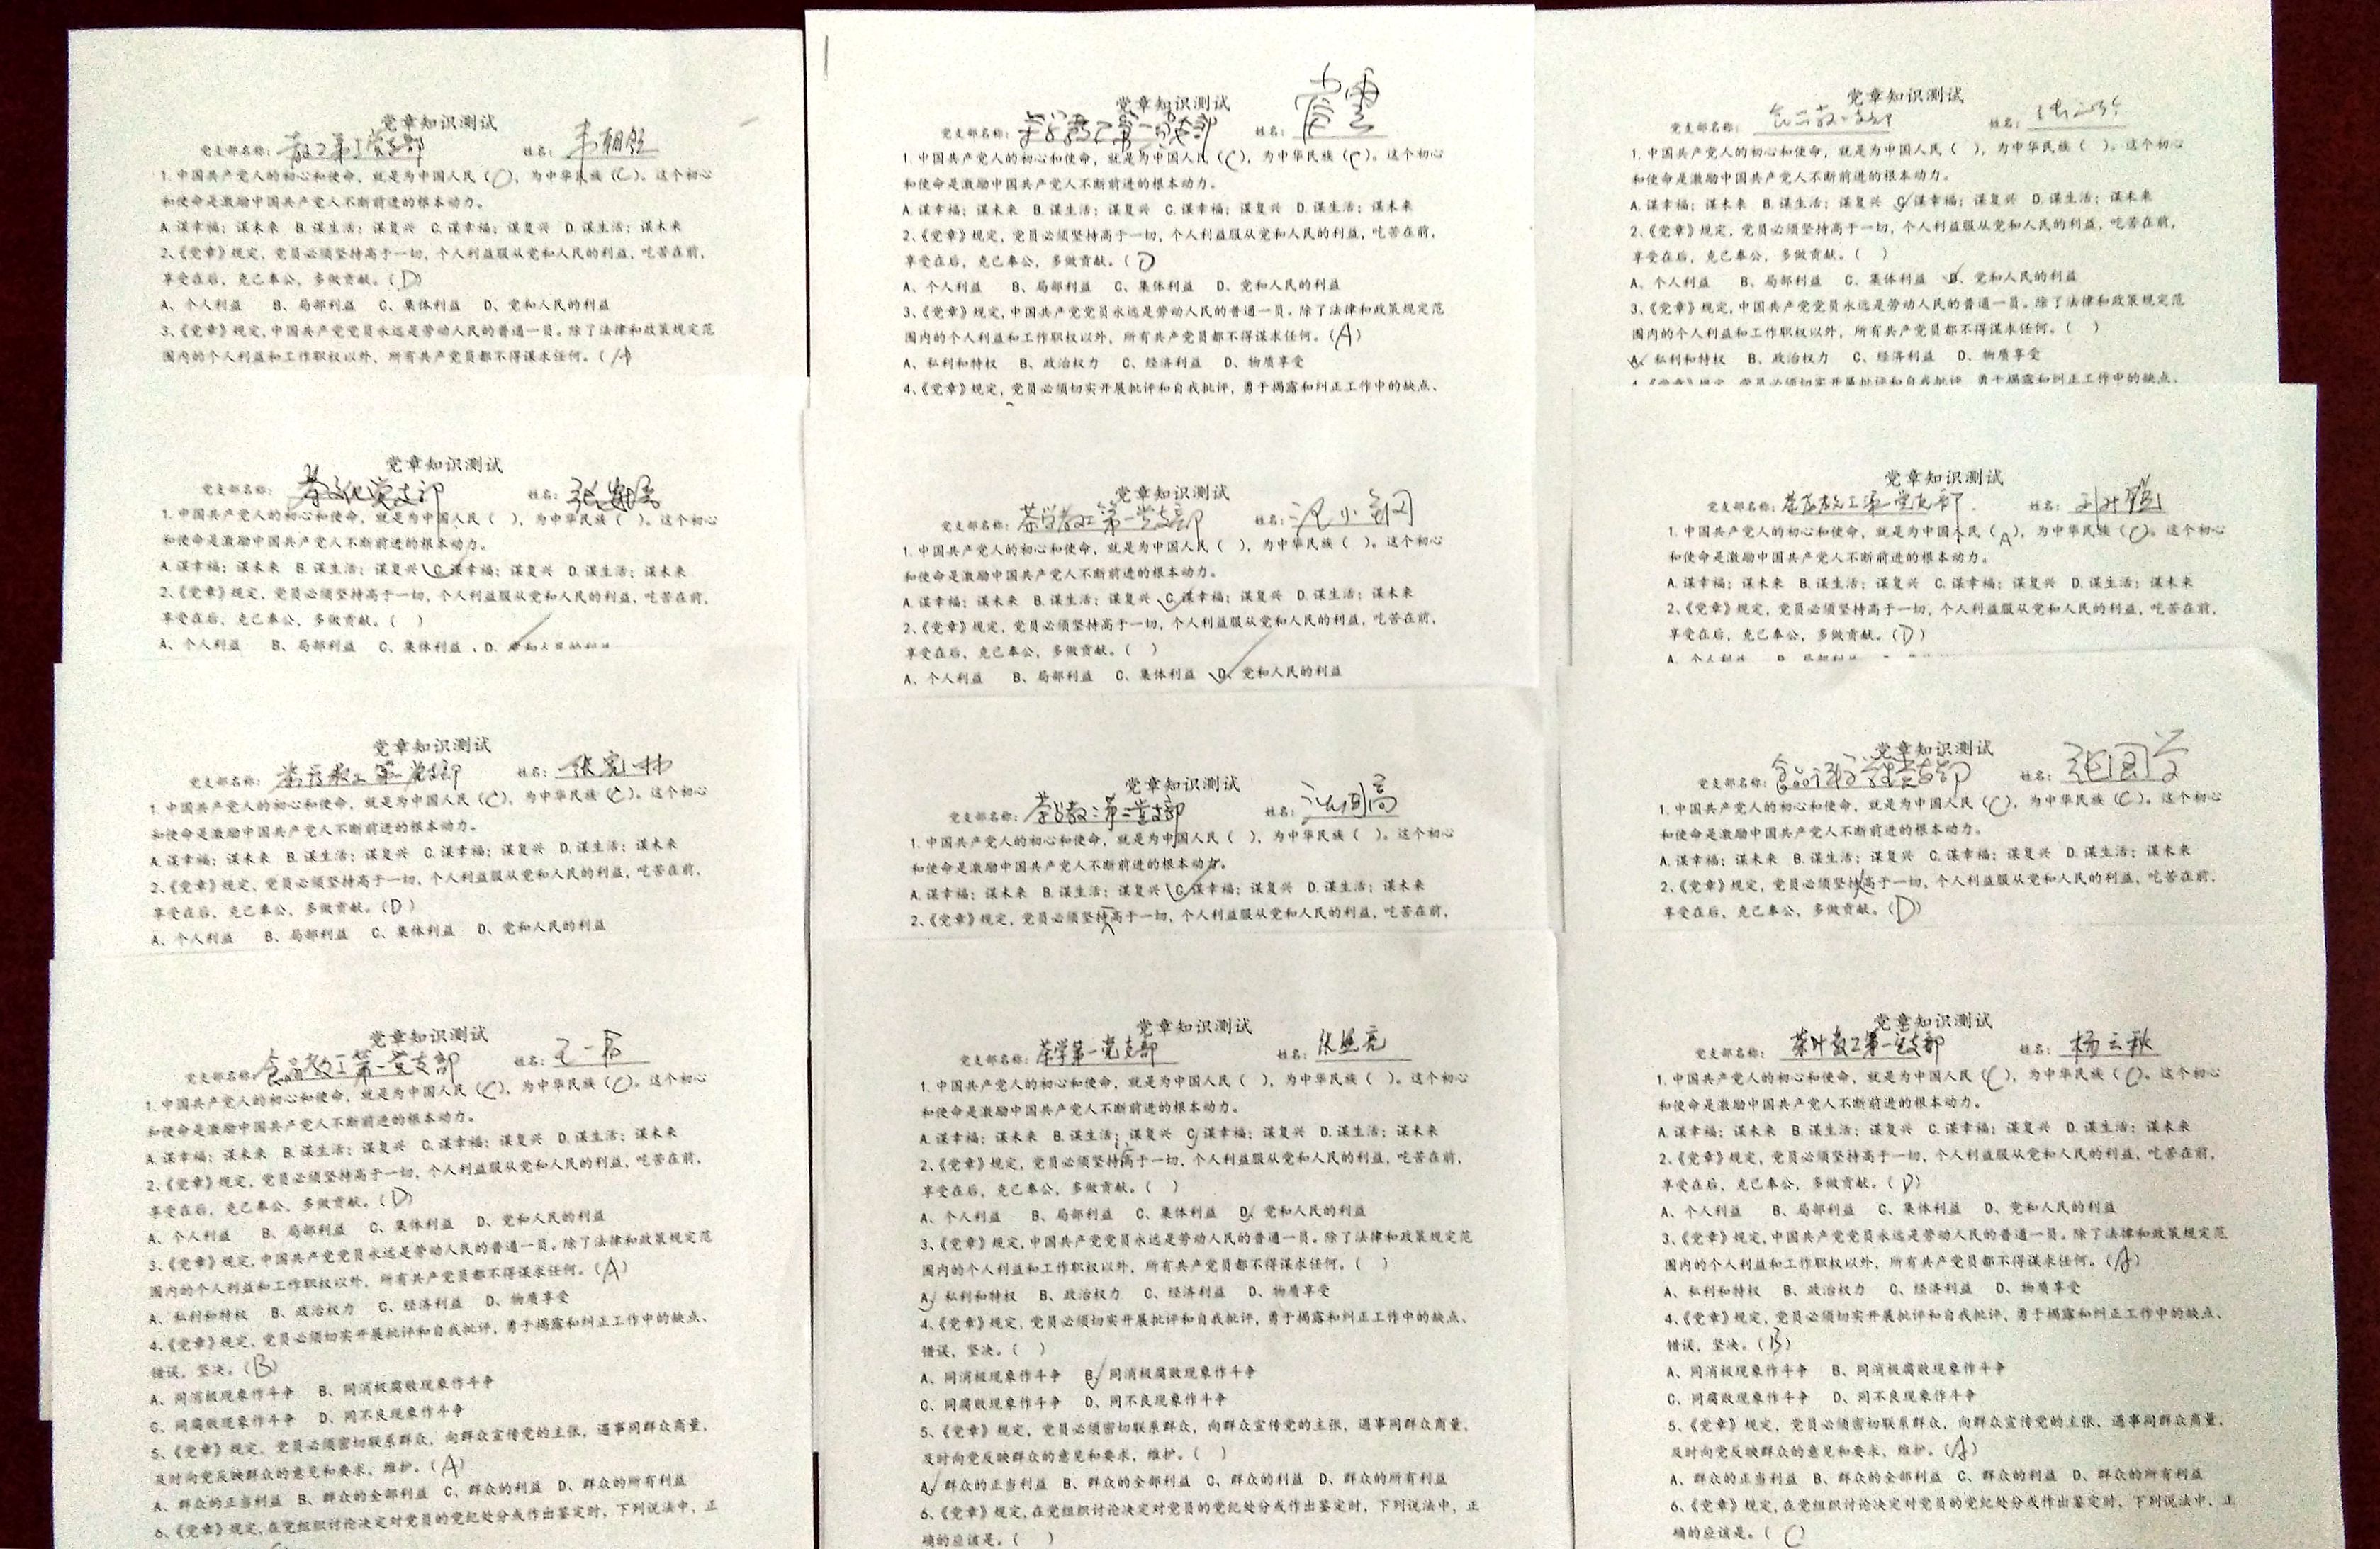 党章知识测试
党支部名称： 教工第 党支部 姓名： 韦朝领
1.中国共产党人的初心和使命，就是为中国人民（C），为中华民族（C）。这个初心
和使命是激励中国共产党人不断前进的根本动力。
A.谋幸福；谋未来 B.谋生活；谋复兴 C.谋幸福；谋复兴 D.谋生活；谋未来
2、《党章》规定，党员必须坚持高于一切，个人利益服从党和人民的利益，吃苦在前，
享受在后，克己奉公，多做贡献。（D）
A、个人利益 B、局部利益 C、集体利益 D、党和人民的利益
3、《党章》规定，中国共产党党员永远是劳动人民的普通一员。除了法律和政策规定范
围内的个人利益和工作职权以外，所有共产党员都不得谋求任何。（A
党章知识测试
党支部名称： 茶文化党支部 姓名： 张
1.中国共产党人的初心和使命，就是为中国人民（ ），为中华民族（ ）。这个初心
和使命是激励中国共产党人不断前进的根本动力。
A.谋幸福；谋未来 B.谋生活；谋复兴 C.谋幸福；谋复兴 D.谋生活；谋未来
2、《党章》规定，党员必须坚持高于一切，个人利益服从党和人民的利益，吃苦在前，
享受在后，克己奉公，多做贡献。（ ）
A、个人利益 B、局部利益 C、集体利益 D、党和人民的利益
党章知识测试
党支部名称： 教工第一党支部 姓名： 张 林
1.中国共产党人的初心和使命，就是为中国人民（C），为中华民族（C）。这个初心
和使命是激励中国共产党人不断前进的根本动力。
A.谋幸福；谋未来 B.谋生活；谋复兴 C.谋幸福；谋复兴 D.谋生活；谋未来
2、《党章》规定，党员必须坚持高于一切，个人利益服从党和人民的利益，吃苦在前，
享受在后，克己奉公，多做贡献。（D）
A、个人利益 B、局部利益 C、集体利益 D、党和人民的利益
党章知识测试
党支部名称： 食品教工第一党支部 姓名： 王一
1.中国共产党人的初心和使命，就是为中国人民（C），为中华民族（C）。这个初心
和使命是激励中国共产党人不断前进的根本动力。
A.谋幸福；谋未来 B.谋生活；谋复兴 C.谋幸福；谋复兴 D.谋生活；谋未来
2、《党章》规定，党员必须坚持高于一切，个人利益服从党和人民的利益，吃苦在前，
享受在后，克己奉公，多做贡献。（D）
A、个人利益 B、局部利益 C、集体利益 D、党和人民的利益
3、《党章》规定，中国共产党党员永远是劳动人民的普通一员。除了法律和政策规定范
围内的个人利益和工作职权以外，所有共产党员都不得谋求任何。（A）
A、私利和特权 B、政治权力 C、经济利益 D、物质享受
4、《党章》规定，党员必须切实开展批评和自我批评，勇于揭露和纠正工作中的缺点、
错误，坚决。（B）
A、同消极现象作斗争 B、同消极腐败现象作斗争
C、同腐败现象作斗争 D、同不良现象作斗争
5、《党章》规定，党员必须密切联系群众，向群众宣传党的主张，遇事同群众商量，
及时向党反映群众的意见和要求，维护。（A）
A、群众的正当利益 B、群众的全部利益 C、群众的利益 D、群众的所有利益
6、《党章》规定，在党组织讨论决定对党员的党纪处分或作出鉴定时，下列说法中，正
党章知识测试
党支部名称： 茶学教工第一党支部 姓名：
1.中国共产党人的初心和使命，就是为中国人民（C），为中华民族（C）。这个初心
和使命是激励中国共产党人不断前进的根本动力。
A.谋幸福；谋未来 B.谋生活；谋复兴 C.谋幸福；谋复兴 D.谋生活；谋未来
2、《党章》规定，党员必须坚持高于一切，个人利益服从党和人民的利益，吃苦在前，
享受在后，克己奉公，多做贡献。（D
A、个人利益 B、局部利益 C、集体利益 D、党和人民的利益
3、《党章》规定，中国共产党党员永远是劳动人民的普通一员。除了法律和政策规定范
围内的个人利益和工作职权以外，所有共产党员都不得谋求任何。（A）
A、私利和特权 B、政治权力 C、经济利益 D、物质享受
4、《党章》规定，党员必须切实开展批评和自我批评，勇于揭露和纠正工作中的缺点、
党章知识测试
党支部名称： 茶学教工第一党支部 姓名： 小
1.中国共产党人的初心和使命，就是为中国人民（ ），为中华民族（ ）。这个初心
和使命是激励中国共产党人不断前进的根本动力。
A.谋幸福；谋未来 B.谋生活；谋复兴 C.谋幸福；谋复兴 D.谋生活；谋未来
2、《党章》规定，党员必须坚持高于一切，个人利益服从党和人民的利益，吃苦在前，
享受在后，克己奉公，多做贡献。（ ）
A、个人利益 B、局部利益 C、集体利益 D、党和人民的利益
党章知识测试
党支部名称： 茶学教工第二党支部 姓名：
1.中国共产党人的初心和使命，就是为中国人民（ ），为中华民族（ ）。这个初心
和使命是激励中国共产党人不断前进的根本动力。
A.谋幸福；谋未来 B.谋生活；谋复兴 C.谋幸福；谋复兴 D.谋生活；谋未来
2、《党章》规定，党员必须坚持高于一切，个人利益服从党和人民的利益，吃苦在前，
党章知识测试
党支部名称： 茶学第一党支部 姓名： 张 亮
1.中国共产党人的初心和使命，就是为中国人民（ ），为中华民族（ ）。这个初心
和使命是激励中国共产党人不断前进的根本动力。
A.谋幸福；谋未来 B.谋生活；谋复兴 C.谋幸福；谋复兴 D.谋生活；谋未来
2、《党章》规定，党员必须坚持高于一切，个人利益服从党和人民的利益，吃苦在前，
享受在后，克己奉公，多做贡献。（ ）
A、个人利益 B、局部利益 C、集体利益 D、党和人民的利益
3、《党章》规定，中国共产党党员永远是劳动人民的普通一员。除了法律和政策规定范
围内的个人利益和工作职权以外，所有共产党员都不得谋求任何。（ ）
A、私利和特权 B、政治权力 C、经济利益 D、物质享受
4、《党章》规定，党员必须切实开展批评和自我批评，勇于揭露和纠正工作中的缺点、
错误，坚决。（ ）
A、同消极现象作斗争 B、同消极腐败现象作斗争
C、同腐败现象作斗争 D、同不良现象作斗争
5、《党章》规定，党员必须密切联系群众，向群众宣传党的主张，遇事同群众商量，
及时向党反映群众的意见和要求，维护。（ ）
A、群众的正当利益 B、群众的全部利益 C、群众的利益 D、群众的所有利益
6、《党章》规定，在党组织讨论决定对党员的党纪处分或作出鉴定时，下列说法中，正
确的应该是。（ ）
党章知识测试
党支部名称： 姓名：
1.中国共产党人的初心和使命，就是为中国人民（ ），为中华民族（ ）。这个初心
和使命是激励中国共产党人不断前进的根本动力。
A.谋幸福；谋未来 B.谋生活；谋复兴 C.谋幸福；谋复兴 D.谋生活；谋未来
2、《党章》规定，党员必须坚持高于一切，个人利益服从党和人民的利益，吃苦在前，
享受在后，克己奉公，多做贡献。（ ）
A、个人利益 B、局部利益 C、集体利益 D、党和人民的利益
3、《党章》规定，中国共产党党员永远是劳动人民的普通一员。除了法律和政策规定范
围内的个人利益和工作职权以外，所有共产党员都不得谋求任何。（ ）
A、私利和特权 B、政治权力 C、经济利益 D、物质享受
4、《党章》规定，党员必须切实开展批评和自我批评，勇于揭露和纠正工作中的缺点、
党章知识测试
党支部名称： 教工第一党支部 姓名：
1.中国共产党人的初心和使命，就是为中国人民（A），为中华民族（C）。这个初心
和使命是激励中国共产党人不断前进的根本动力。
A.谋幸福；谋未来 B.谋生活；谋复兴 C.谋幸福；谋复兴 D.谋生活；谋未来
2、《党章》规定，党员必须坚持高于一切，个人利益服从党和人民的利益，吃苦在前，
享受在后，克己奉公，多做贡献。（D）
A、个人利益 B、局部利益
党章知识测试
党支部名称： 食品 党支部 姓名： 张国
1.中国共产党人的初心和使命，就是为中国人民（C），为中华民族（C）。这个初心
和使命是激励中国共产党人不断前进的根本动力。
A.谋幸福；谋未来 B.谋生活；谋复兴 C.谋幸福；谋复兴 D.谋生活；谋未来
2、《党章》规定，党员必须坚持高于一切，个人利益服从党和人民的利益，吃苦在前，
享受在后，克己奉公，多做贡献。（D）
党章知识测试
党支部名称： 茶叶教工第一党支部 姓名： 杨云秋
1.中国共产党人的初心和使命，就是为中国人民（C），为中华民族（C）。这个初心
和使命是激励中国共产党人不断前进的根本动力。
A.谋幸福；谋未来 B.谋生活；谋复兴 C.谋幸福；谋复兴 D.谋生活；谋未来
2、《党章》规定，党员必须坚持高于一切，个人利益服从党和人民的利益，吃苦在前，
享受在后，克己奉公，多做贡献。（D）
A、个人利益 B、局部利益 C、集体利益 D、党和人民的利益
3、《党章》规定，中国共产党党员永远是劳动人民的普通一员。除了法律和政策规定范
围内的个人利益和工作职权以外，所有共产党员都不得谋求任何。（A）
A、私利和特权 B、政治权力 C、经济利益 D、物质享受
4、《党章》规定，党员必须切实开展批评和自我批评，勇于揭露和纠正工作中的缺点、
错误，坚决。（B）
A、同消极现象作斗争 B、同消极腐败现象作斗争
C、同腐败现象作斗争 D、同不良现象作斗争
5、《党章》规定，党员必须密切联系群众，向群众宣传党的主张，遇事同群众商量，
及时向党反映群众的意见和要求，维护。（A）
A、群众的正当利益 B、群众的全部利益 C、群众的利益 D、群众的所有利益
6、《党章》规定，在党组织讨论决定对党员的党纪处分或作出鉴定时，下列说法中，正
确的应该是。（C）